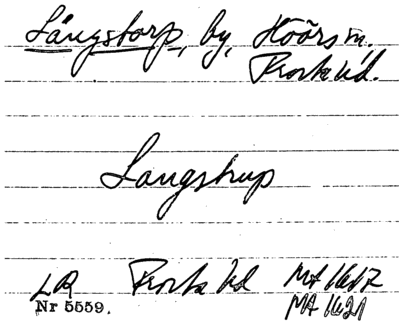 Långstorp, by, Höörs sn.
Frosta hd.
Langstrup
LR Frosta hd MA 1617
Nr 5559. MA 1621